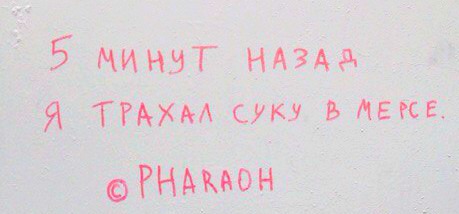 5 МИНУТ НАЗАД
Я ТРАХАЛ СУКУ В МЕРСЕ.
© PHARAOH